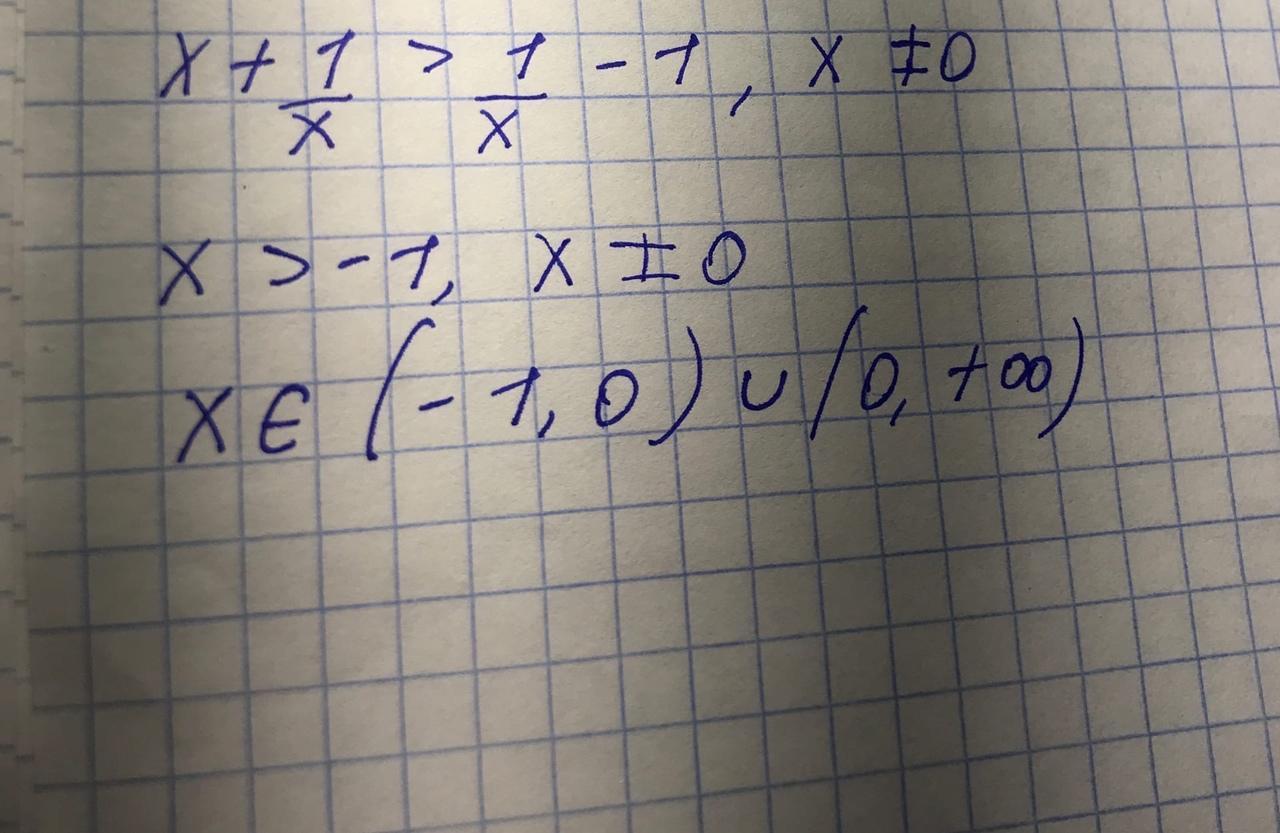 x + 1/x > 1/x - 1, x ≠ 0
x > -1, x ≠ 0
x ∈ (-1, 0) ∪ (0, +∞)